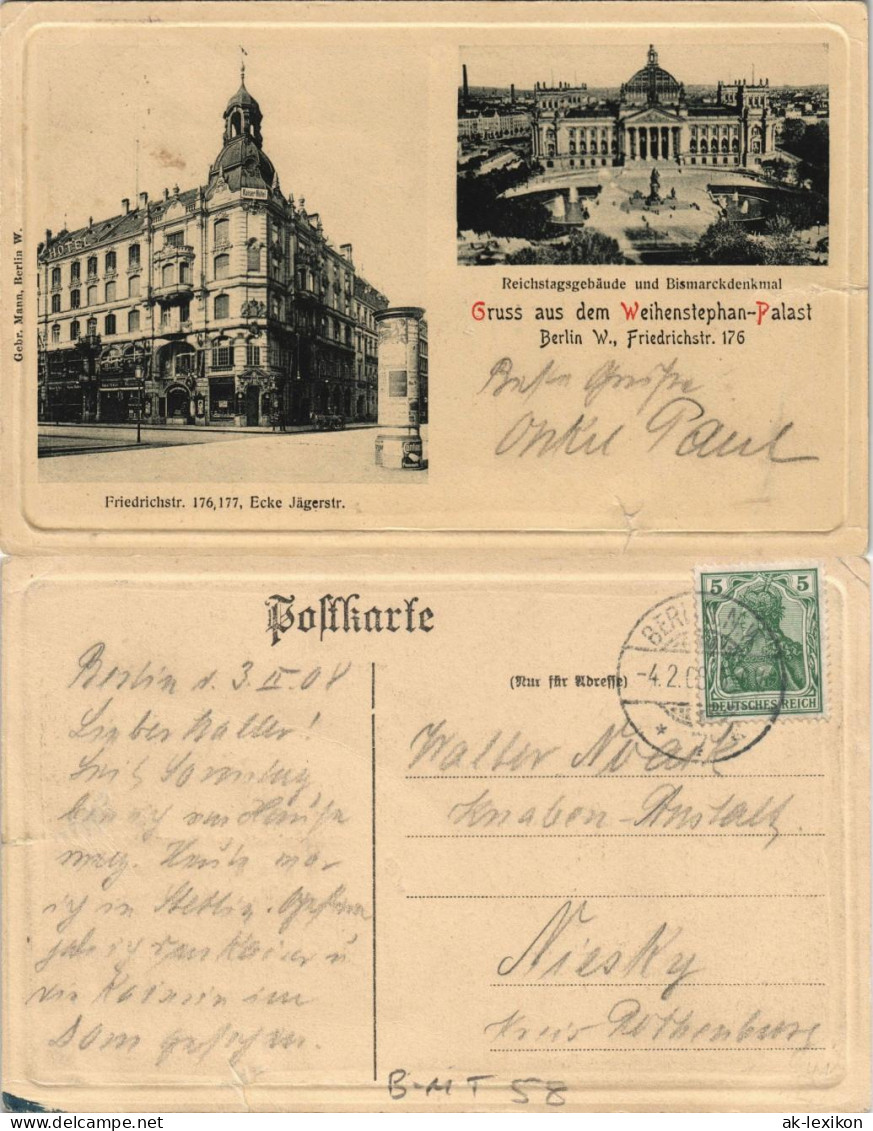 HOTEL
Kaiser-Hôtel
Gebr. Mann, Berlin W.
Friedrichstr. 176,177, Ecke Jägerstr.
Reichstagsgebäude und Bismarckdenkmal
Gruss aus dem Weihenstephan-Palast
Berlin W., Friedrichstr. 176
Beste Grüße
Onkel Paul
Postkarte
(Nur für Adresse)
BERLIN
-4.2.08
5 5
DEUTSCHES REICH
Berlin d. 3. II. 08
Lieber Walter!
Seit Sonntag
bin ich von Hause
weg. Heute war
ich in Stettin. Gestern
habe ich den Kaiser u
die Kaiserin im
Dom gesehen.
Walter Noack
Knaben-Anstalt
Niesky
Kreis Rothenburg
B-MT 58
ak-lexikon